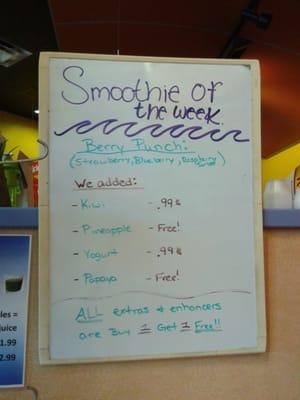 Smoothie of
the week.
Berry Punch:
(Strawberry, Blueberry, Raspberry)
We added:
- Kiwi - .99¢
- Pineapple - Free!
- Yogurt - .99¢
- Papaya - Free!
ALL extras & enhancers
are Buy 1 Get 1 Free!!
les =
juice
1.99
2.99